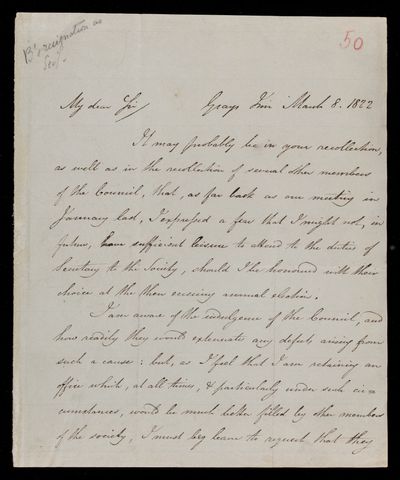 B's resignation as
Sec.y
50
My dear Sir, Grays Inn March 8. 1822
It may probably be in your recollection,
as well as in the recollection of several other members
of the Council, that, as far back as our meeting in
January last, I expressed a fear that I might not, in
future, have sufficient leisure to attend to the duties of
Secretary to the Society, should I be honoured with their
choice at the then ensuing annual election.
I am aware of the indulgence of the Council, and
how readily they would extenuate any defects arising from
such a cause: but, as I feel that I am retaining an
office which, at all times, & particularly under such cir=
cumstances, would be much better filled by other members
of the society, I must beg leave to request that they